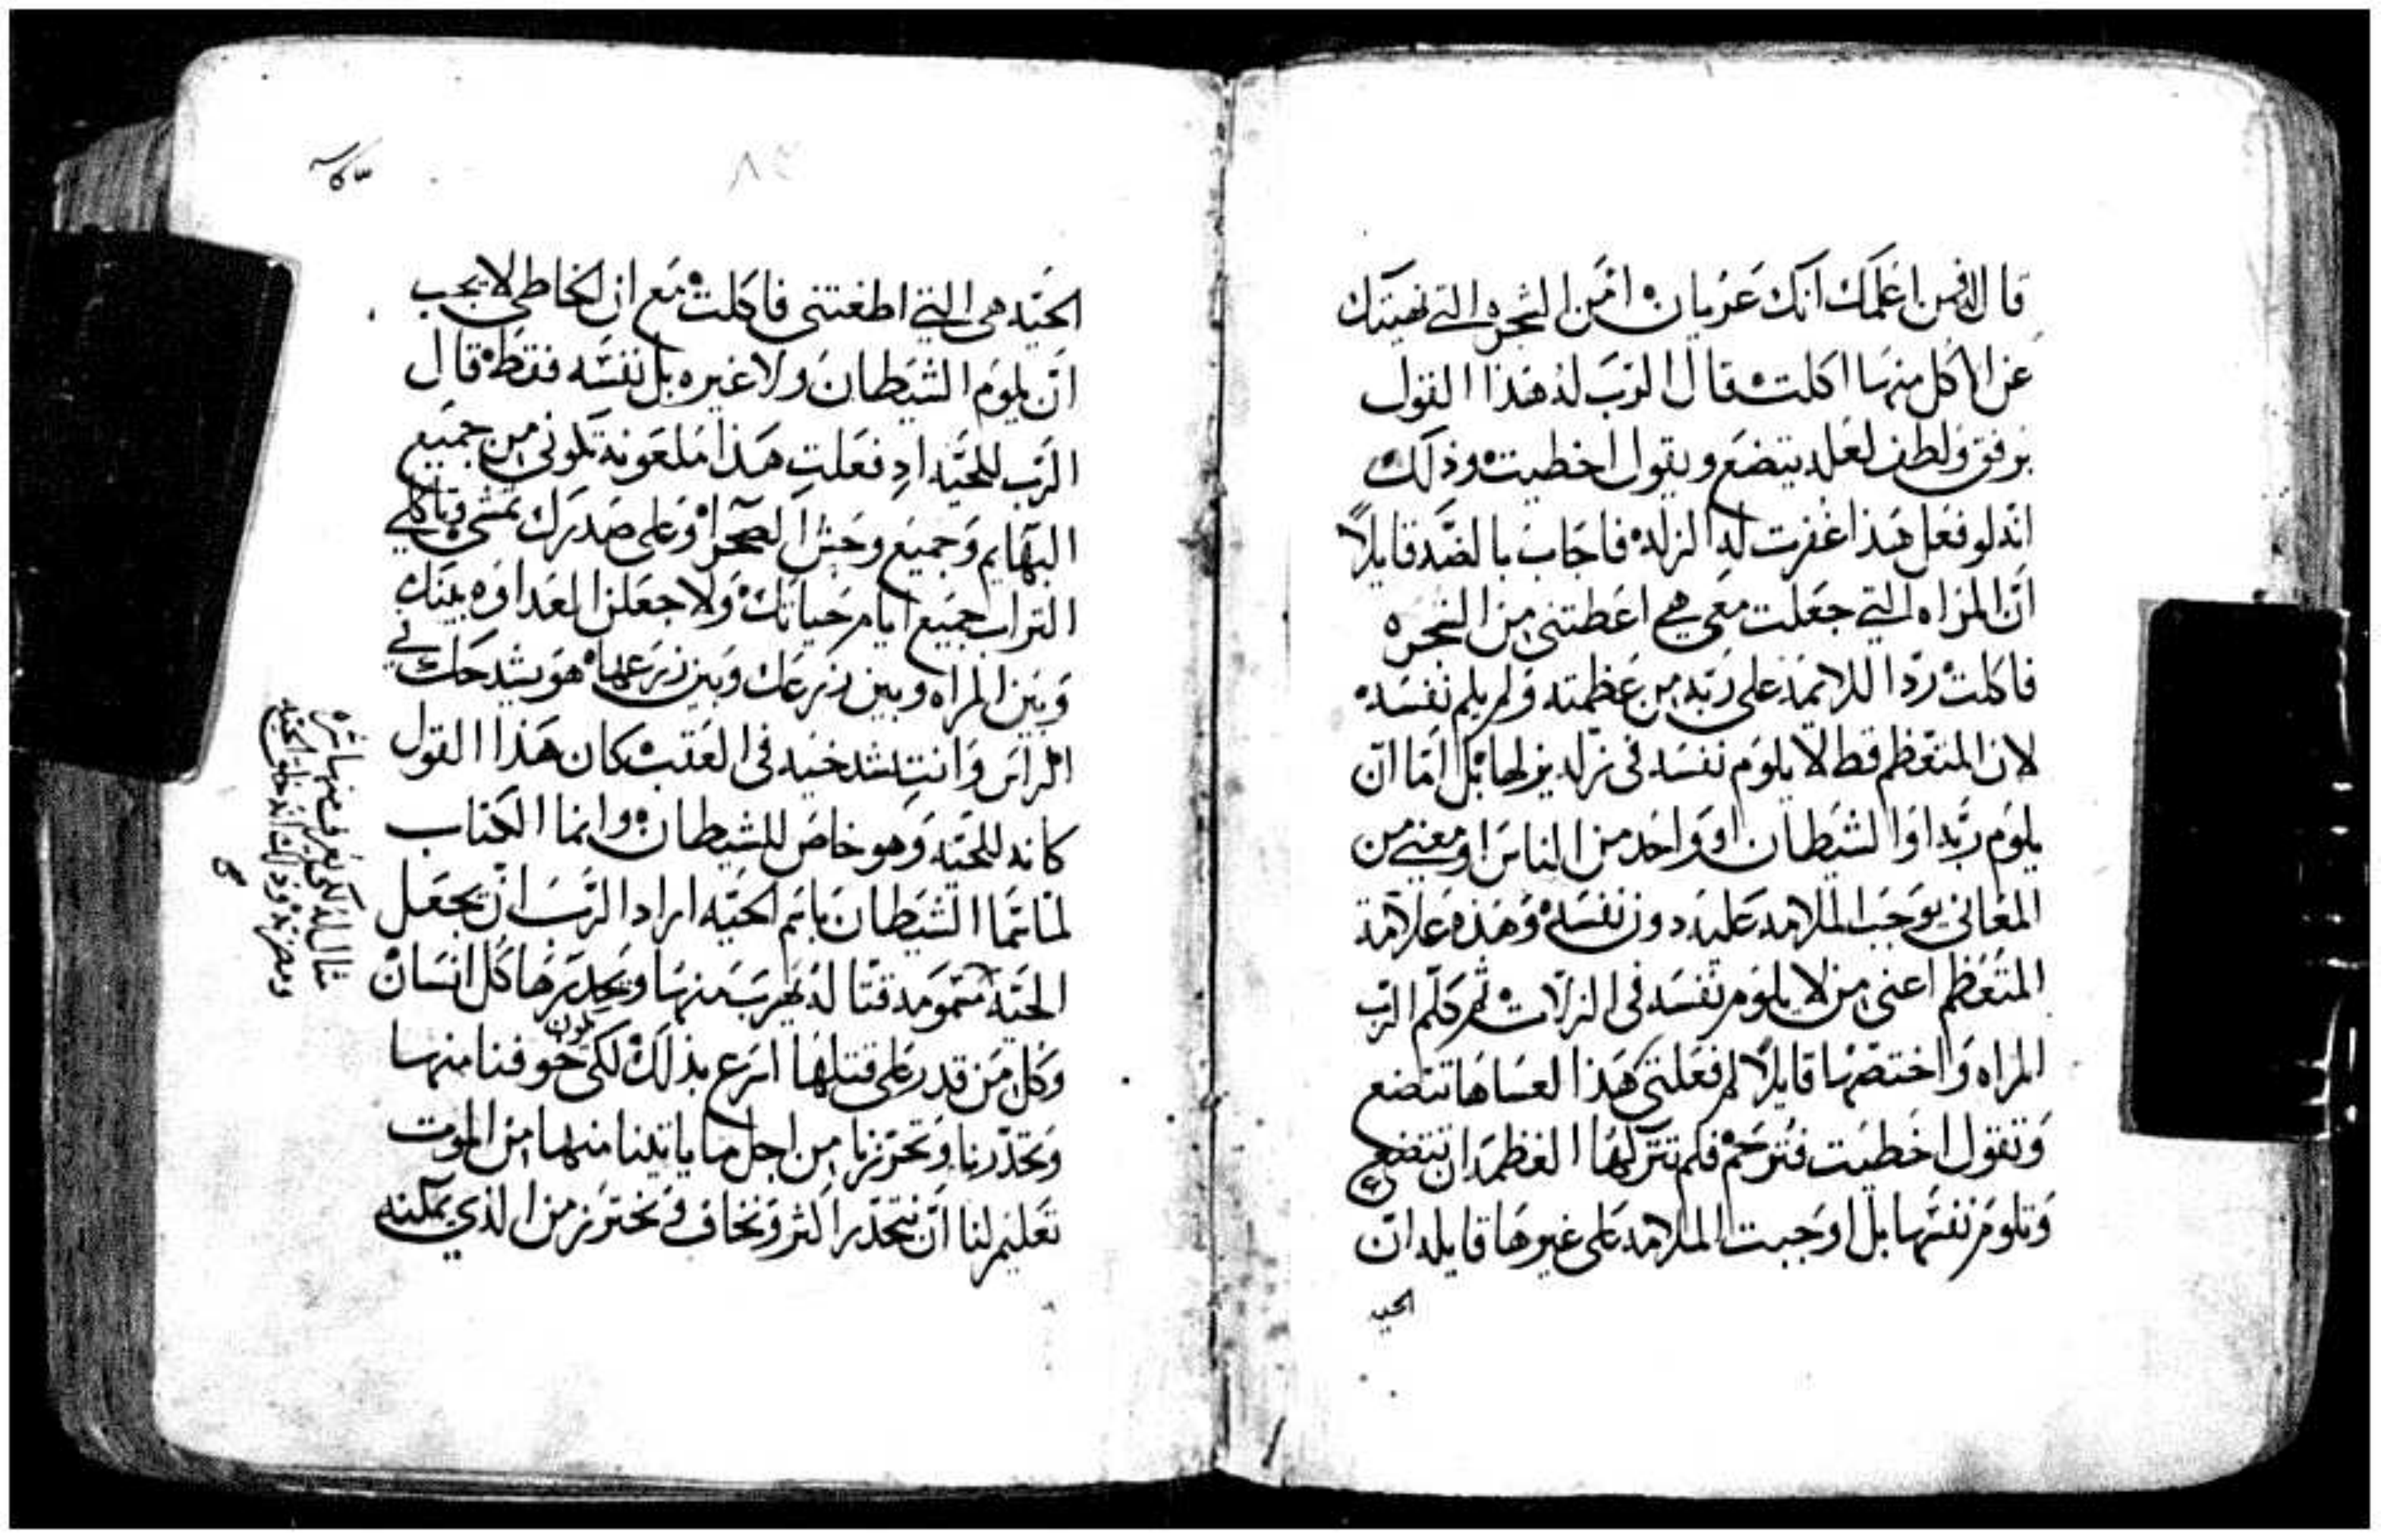 قال الله فمن اعلمك انك عريان امن الشجره التي نهيتك
عن الاكل منها اكلت قال الرب له هذا القول
برفق ولطف لعله يتضع ويقول اخطيت وذلك
انه لو فعل هذا غفرت له الزله فاجاب بالضد قايلاً
ان المراه التي جعلت معي هي اعطتني من الشجره
فاكلت رد اللايمه على ربه من عظمته ولم يلم نفسه
لان المتعظم قط لا يلوم نفسه في زله يزلها بل اما ان
يلوم ربه او الشيطان او واحد من الناس او معني من
المعاني يوجب الملامه عليه دون نفسه وهذه علامة
المتعظم اعني من لا يلوم نفسه في الزلات ثم كلم الرب
المراه واختصها قايلاً لم فعلتي هذا لعساها تتضع
وتقول اخطيت فترحم فلم تتركها العظمه ان تتضع
وتلوم نفسها بل اوجبت الملامه على غيرها قايله ان
الحيه
الحيه هي التي اطغتني فاكلت مع ان الخاطي لا يجب
ان يلوم الشيطان ولا غيره بل نفسه فقط قال
الرب للحيه اد فعلت هذا ملعونه تكوني من جميع
البهايم وجميع وحش الصحرا وعلى صدرك تمشي وتاكلي
التراب جميع ايام حياتك ولاجعلن العداوه بينك
وبين المراه وبين زرعك وبين زرعها هو يشدخك في
الراس وانت تشدخيه في العقب كان هذا القول
كانه للحيه وهو خاص للشيطان وانما الكتاب
لما سما الشيطان باسم الحيه اراد الرب ان يجعل
الحيه مقتا له يهرب منها ويحدرها كل انسان
وكل من قدر على قتلها اسرع بذلك لكي يكون خوفنا منها
وتحدرنا وتحرزنا من اجل ما ياتينا منها من الموت
تعليم لنا ان نتحدر اكثر ونخاف ونحترز من الذي يمكنه